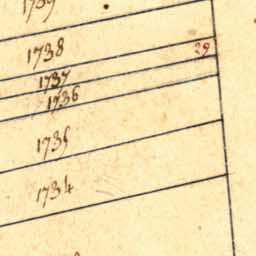 1739
1738
29
1737
1736
1735
1734